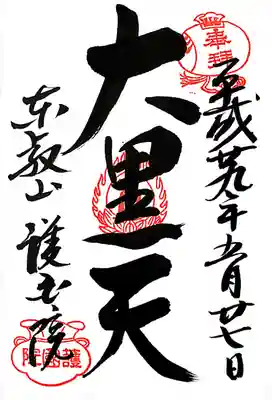 奉拝
平成廿九年五月廿七日
大黒天
東叡山 護国院
護國院